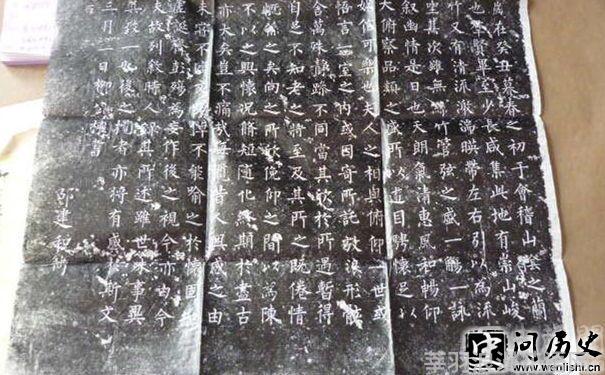 歲在癸丑暮春之初于會稽山陰之蘭
也羣賢畢至少長咸集此地有崇山峻
竹又有清流激湍暎帶左右引以為流
坐其次雖無絲竹管弦之盛一觴一詠
叙幽情是日也天朗氣清惠風和暢仰
大俯察品類之盛所以遊目騁懷足以
娛信可樂也夫人之相與俯仰一世或
悟言一室之內或因寄所託放浪形骸
舍萬殊靜躁不同當其欣於所遇暫得
自足不知老之將至及其所之既倦情
慨係之矣向之所欣俛仰之間以為陳
不以之興懷況脩短隨化終期於盡古
亦大矣豈不痛哉每覽昔人興感之由
未嘗不臨文嗟悼不能喻之於懷固知
虛誕齊彭殤為妄作後之視今亦由今
夫故列敘時人錄其所述雖世殊事異
其致一也後之覽者亦將有感於斯文
三月一日柳公權書
邵建和
问历史
www.wenlishi.cn